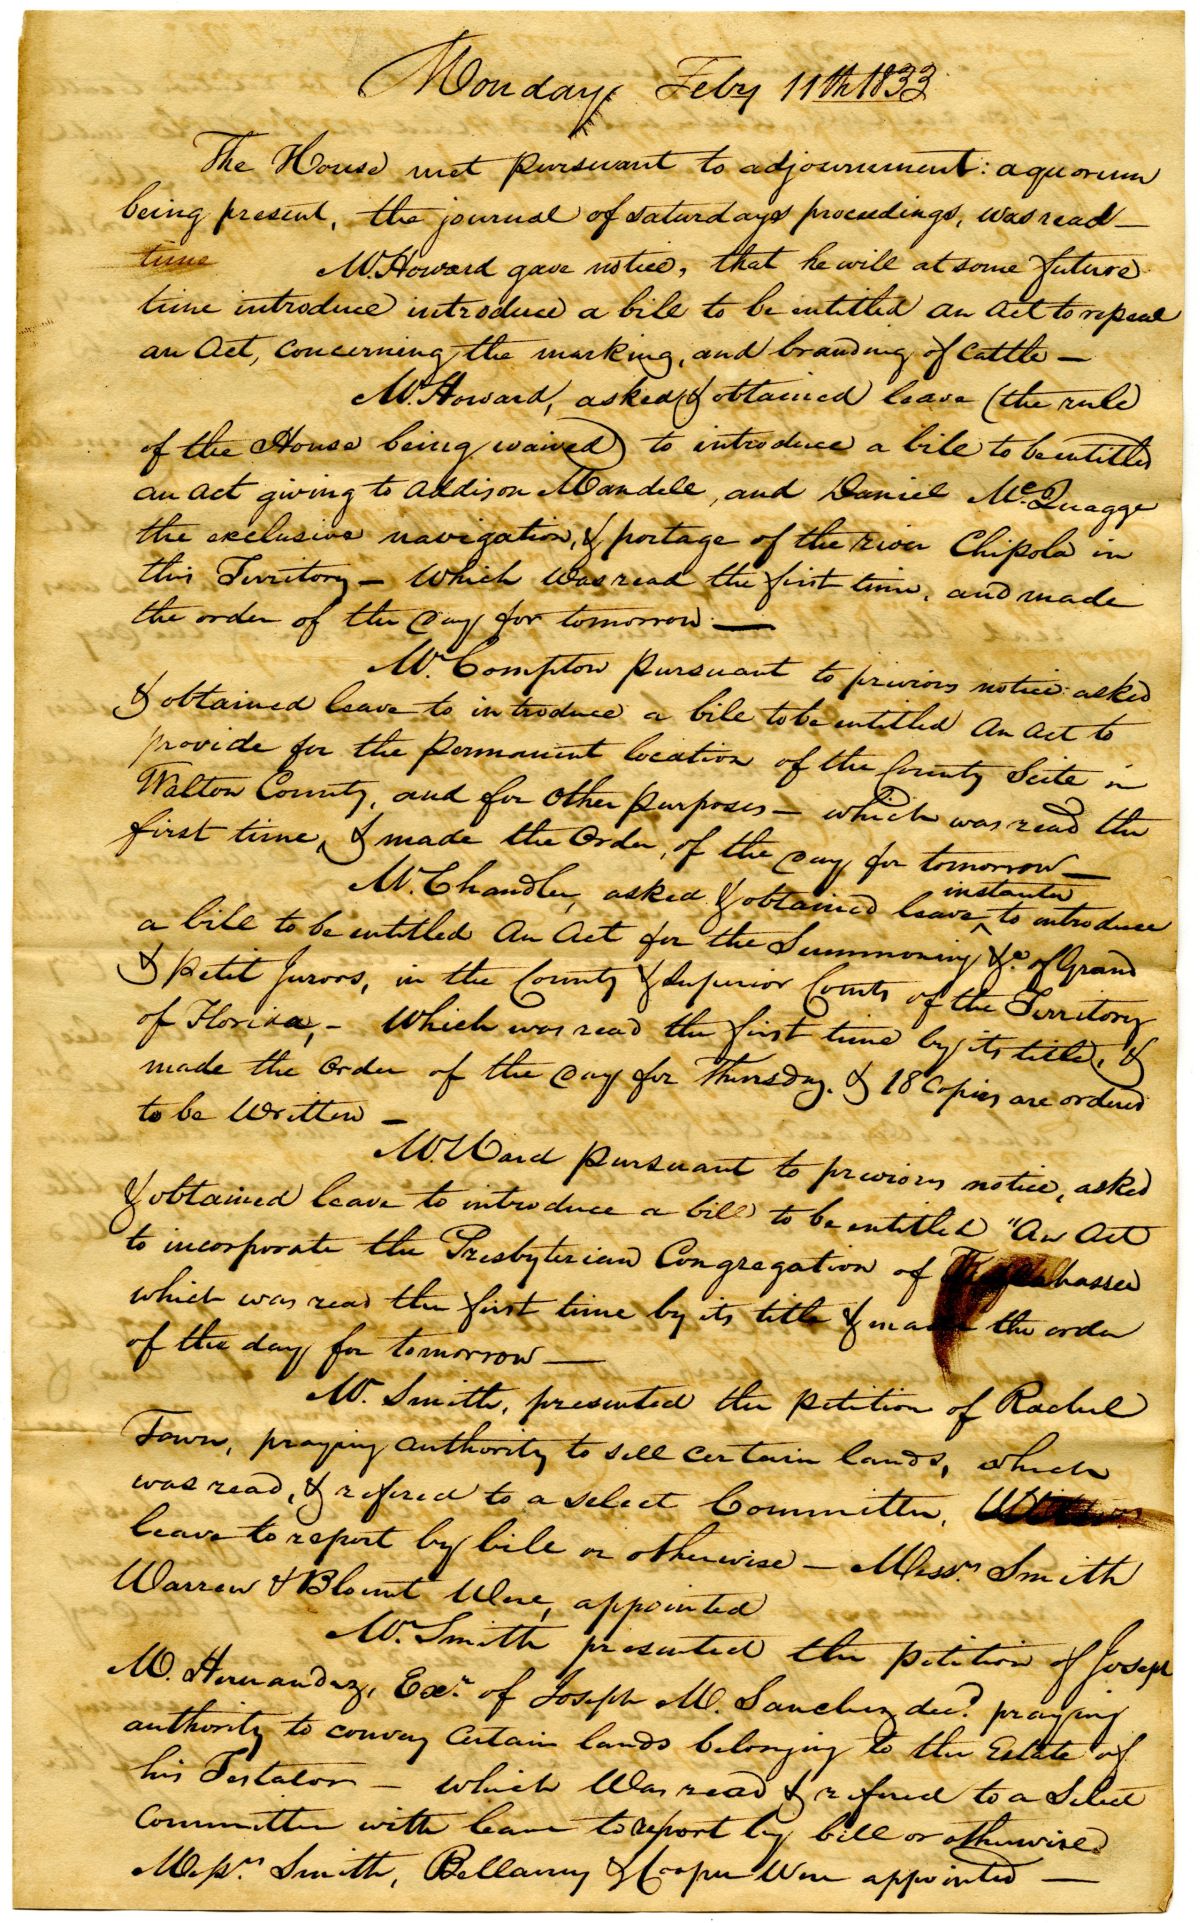 Monday Feby 11th 1833
The House met pursuant to adjournment: a quorum
being present, the journal of saturdays proceedings, was read —
time Mr. Howard gave notice, that he will at some future
time introduce introduce a bill to be entitled an act to repeal
an Act, concerning the marking, and branding of cattle —
Mr. Howard, asked & obtained leave (the rule
of the House being waived) to introduce a bill to be entitled
an act giving to Addison Mandell, and Daniel McQuagge
the exclusive navigation, & portage of the river Chipola in
this Territory — Which was read the first time, and made
the order of the Day for tomorrow —
Mr. Compton pursuant to privious notice asked
& obtained leave to introduce a bill to be entitled An Act to
provide for the permanent location of the County Seite in
Walton County, and for other purposes — which was read the
first time, & made the Order, of the Day for tomorrow —
Mr. Chandler, asked & obtained leave instanter to introduce
a bill to be entitled An Act for the Summoning &c. of Grand
& Petit Jurors, in the County & Superior Courts of the Territory
of Florida, — Which was read the first time by its title, &
made the Order of the Day for Thursday. & 18 Copies are ordered
to be Written —
Mr. Ward pursuant to previous notice, asked
& obtained leave to introduce a bill to be entitled "An Act
to incorporate the Presbyterian Congregation of Tallahassee
which was read the first time by its title & made the order
of the day for tomorrow —
Mr. Smith, presented the petition of Rachel
Town, praying authority to sell certain lands, which
was read, & refered to a select Committee,
leave to report by bill or otherwise — Messrs. Smith
Warren & Blount Were, appointed
Mr. Smith presented the petition of Joseph
M. Hernandez, Exr. of Joseph M. Sanchez decd. praying
authority to convey Certain lands belonging to the Estate of
his Testator — which Was read & refered to a Select
Committee with leave to report by bill or otherwise.
Messrs. Smith, Bellamy & Cooper Were appointed —